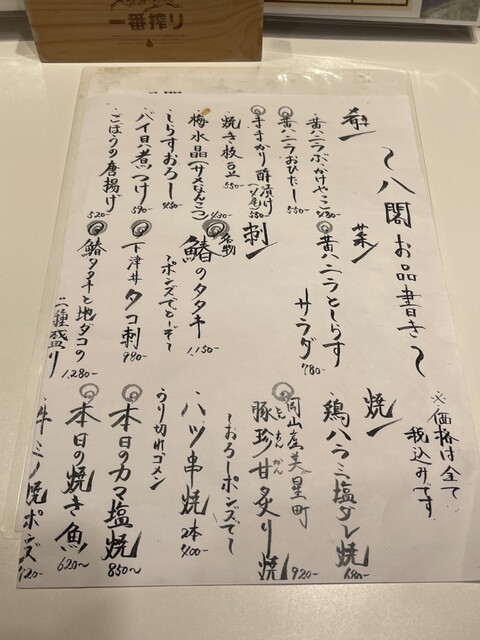 一番搾り
～八閣お品書き～
※価格は全て
税込みです
肴
黄ハニラぶっかけやっこ 480-
黄ハニラおひたし 550-
ままかり酢漬け 550-
焼き枝豆 550-
梅水晶(サメなんこつ) 450-
しらすおろし 450-
バイ貝煮つけ 590-
ごぼうの唐揚げ 520-
菜
黄ハニラとしらす
サラダ 780-
刺
名物
鰆のタタキ 1,150-
～ポンズでどーぞ～
下津井タコ刺 980-
鰆タタキと地ダコの
二種盛り 1,280-
焼
鶏ハラミ塩ダレ焼 680-
岡山産美星町
とんちんかん
豚珍甘炙り焼 920-
～おろしポンズで～
ハツ串焼 2本 400-
うり切れゴメン
本日のカマ塩焼 850～
本日の焼き魚 620～
牛ミノ焼ポンズ